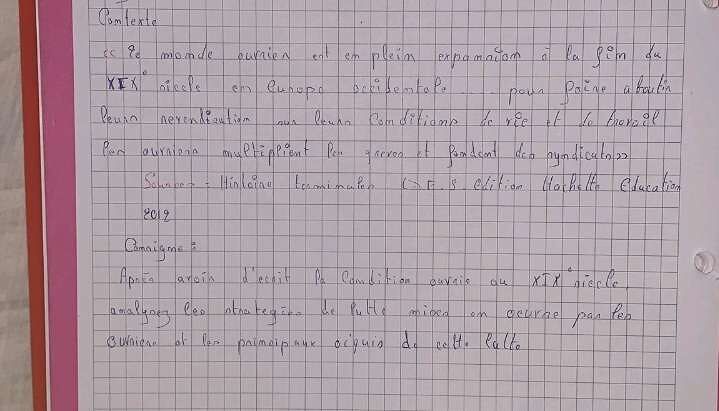 Contexte
<< Le monde ouvrier est en plein expansion à la fin du
XIX° siècle en Europe occidentale. pour faire aboutir
leurs revendication sur leurs Conditions de vie et de travail
les ouvriers multiplient les greves et fondent des syndicats >>
Source = Histoire terminales L-ES edition Hachette Education
2012
Consigne :
Après avoir d'ecrit la Condition ouvrie au XIX° siecle,
analysez les strategies de lutte mises en oeuvre par les
ouvriers et les principaux aiquis de cette lutte